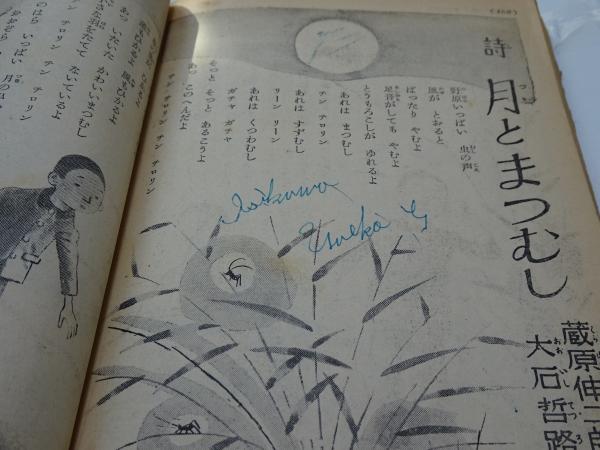 (168)
詩
月とまつむし
つき
蔵原伸二郎
大石哲路
おおいしてつろ
野原いっぱい 虫の声
風が とおると
ぱったり やむよ
足音がしても やむよ
とうもろこしが ゆれるよ
あれは まつむし
チン チロリン
あれは すずむし
リーン リーン
あれは くつわむし
ガチャ ガチャ
そっと そっと あるこうよ
あっ このへんだよ
チン チロリン チン チロリン
あっ いたいた かわいいまつむし
ないているよ
チン チロリン チン チロリン
のはら いっぱい 月の